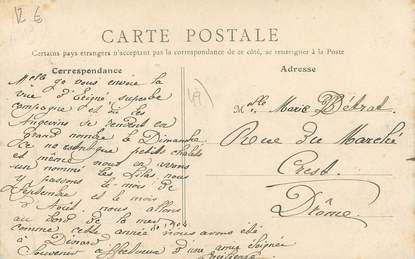 12 €
CARTE POSTALE
Certains pays étrangers n'acceptant pas la correspondance de ce côté, se renseigner à la Poste
Correspondance
Adresse
je vous envoie la
vue d'Erigné superbe
campagne c'est là où les
Angevins se rendent en
grand nombre le Dimanche
Ce ne sont que petits chalets
et même nous en avons
un nommé les Lilas nous
y passons le mois de
Septembre et le mois
d'Août nous allons
au bord de la mer
comme cette année nous avons été
à Dinard
Souvenir affectueux d'une amie
49
Melle Marie Bétrat
Rue du Marché
Crest
Drôme